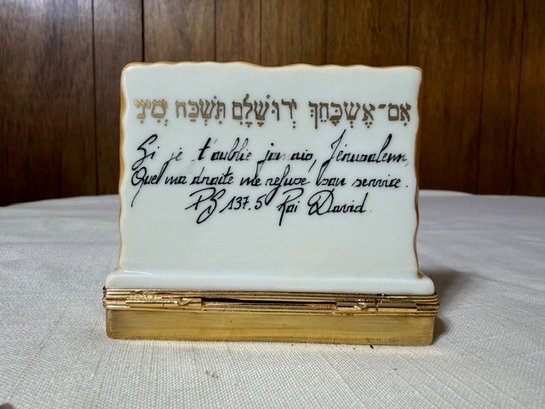 אִם־אֶשְׁכָּחֵךְ יְרוּשָׁלִָם תִּשְׁכַּח יְמִינִי
Si je t'oublie jamais, Jérusalem,
Que ma droite me refuse son service.
PS 137.5 Roi David.